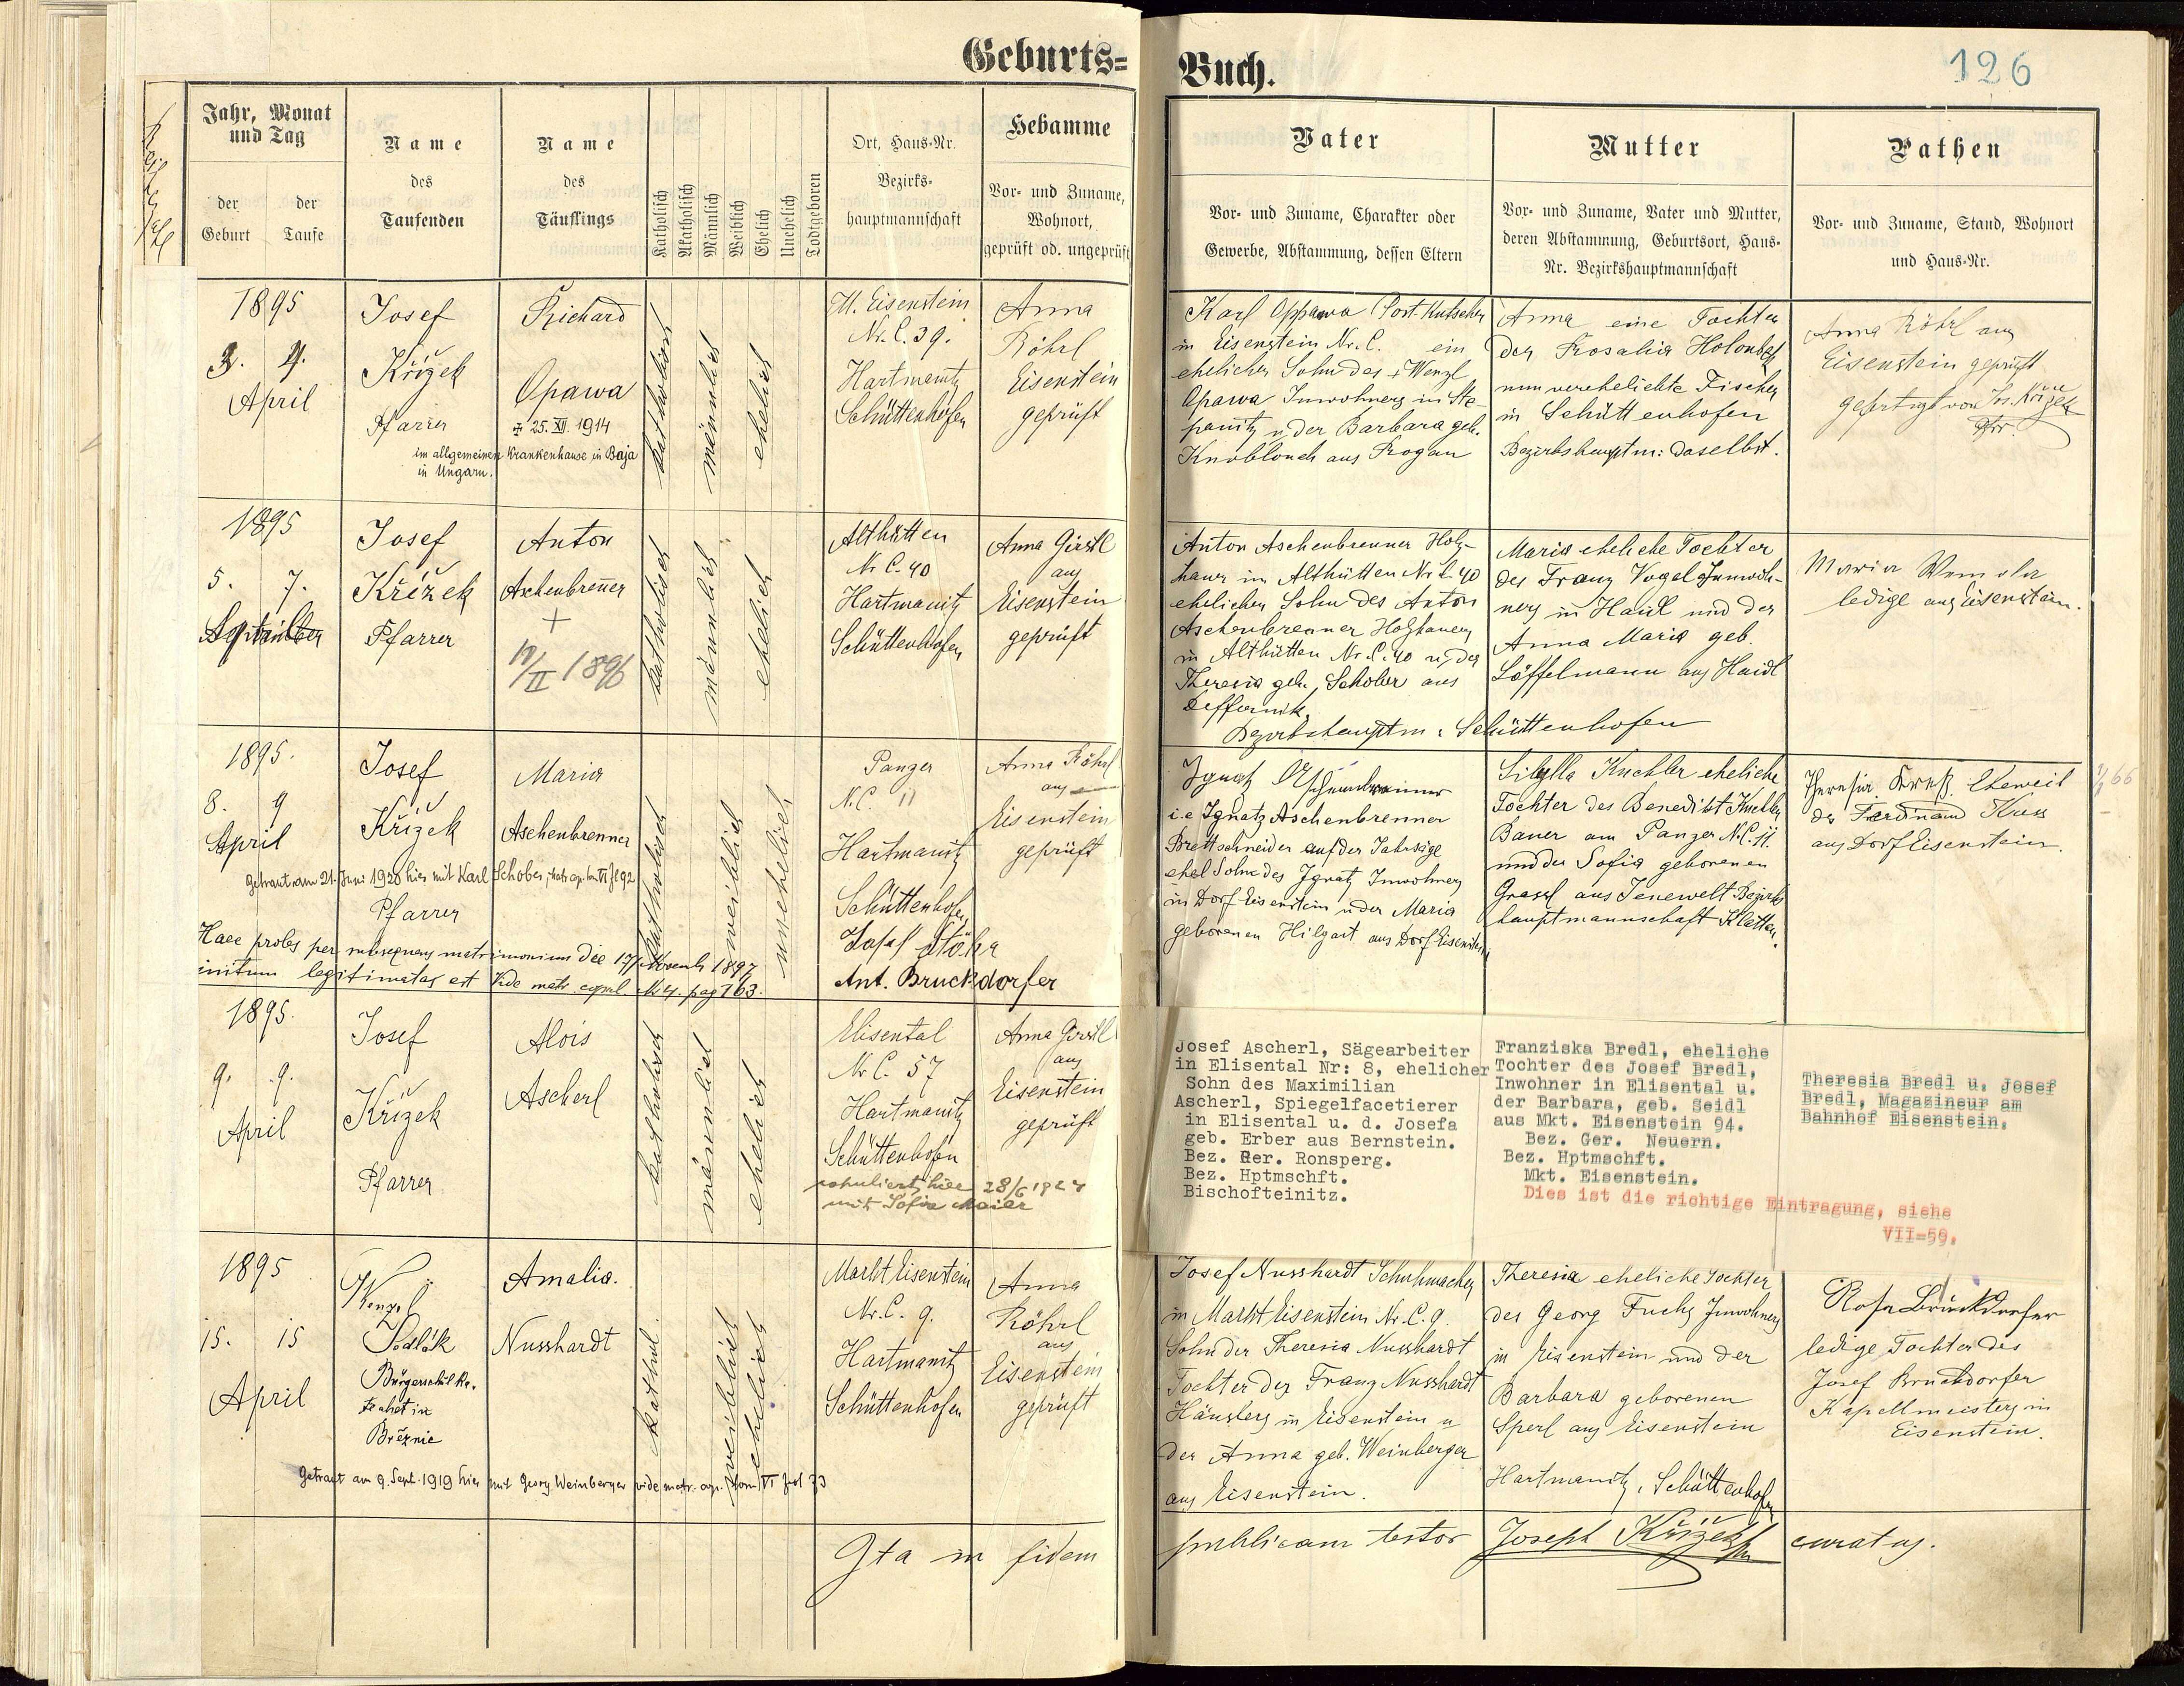 Geburts=
Buch.
126
Jahr, Monat
und Tag
der
Geburt
der
Taufe
Name
des
Taufenden
Name
des
Täuflings
Katholisch
Akatholisch
Männlich
Weiblich
Ehelich
Unehelich
Todtgeboren
Ort, Haus-Nr.
Bezirks-
hauptmannschaft
Hebamme
Vor- und Zuname,
Wohnort,
geprüft od. ungeprüft
Vater
Vor- und Zuname, Charakter oder
Gewerbe, Abstammung, dessen Eltern
Mutter
Vor- und Zuname, Vater und Mutter,
deren Abstammung, Geburtsort, Haus-
Nr. Bezirkshauptmannschaft
Pathen
Vor- und Zuname, Stand, Wohnort
und Haus-Nr.
1895
3. 9.
April
Josef
Křížek
Pfarrer
Richard
Opawa
25. XII. 1914
im allgemeinen Krankenhause in Baja
in Ungarn.
katholisch
männlich
ehelich
M. Eisenstein
Nr. C. 39.
Hartmanitz
Schüttenhofen
Anna
Röhrl
Eisenstein
geprüft
Karl Oppawa Post-Kutscher
in Eisenstein Nr. C. ein
ehelicher Sohn des + Wenzl
Opawa Inwohners in Ste-
panitz u. der Barbara geb.
Knoblouch aus Rogau
Anna eine Tochter
der Rosalia Holoubek
nun verehelichte Fischer
in Schüttenhofen
Bezirkshauptm: daselbst.
Anna Röhrl aus
Eisenstein geprüft
gefertigt von Jos. Křížek
Pfr.
1895
5. 7.
September
Josef
Křížek
Pfarrer
Anton
Aschenbrenner
+
II 1896
katholisch
männlich
ehelich
Althütten
Nr C. 40
Hartmanitz
Schüttenhofen
Anna Girstl
aus
Eisenstein
geprüft
Anton Aschenbrenner Holz-
hauer in Althütten Nr C. 40
ehelicher Sohn des Anton
Aschenbrenner Holzhauers
in Althütten Nr. C. 40 u. der
Theresia geb. Schober aus
Deffernik.
Bezirkshauptm: Schüttenhofen
Maria eheliche Tochter
des Franz Vogel Inwoh-
ners in Haidl und der
Anna Maria geb.
Löffelmann aus Haidl
Maria
ledige aus Eisenstein.
1895.
8. 9
April
Josef
Křížek
Pfarrer
Maria
Aschenbrenner
getraut am 21. Juni 1920 hier mit Karl Schober,
katholisch
weiblich
unehelich
Haec proles per subsequens matrimonium die 17 Novemb 1897
initum legitimatas est Vide matr. copul. pag 163.
Panzer
N. C. 11
Hartmanitz
Schüttenhofen
Josef Stöhr
Ant. Bruckdorfer
Anna Röhrl
aus
Eisenstein
geprüft
Ignatz Aschenbrenner
i.e Ignatz Aschenbrenner
Brettschneider auf der Jahrsäge
ehel Sohn des Ignatz Inwohners
in Dorf Eisenstein u der Maria
geborenen Hilgart aus Dorf Eisenstein
Sibylla Kuchler eheliche
Tochter des Benedikt Kuchler
Bauer am Panzer N.C. 11.
und der Sofia geborenen
Grassl aus Jenewelt Bezirks
hauptmannschaft Klattau.
Theresia Kreß Eheweib
des Ferdinand Kress
aus Dorf Eisenstein.
1895.
9. 9.
April
Josef
Křížek
Pfarrer
Alois
Ascherl
katholisch
männlich
ehelich
Elisental
Nr C. 57
Hartmanitz
Schüttenhofen
kopuliert hier 28/6 1924
mit Sofia Maier
Anna Girstl
aus
Eisenstein
geprüft
Josef Ascherl, Sägearbeiter
in Elisental Nr: 8, ehelicher
Sohn des Maximilian
Ascherl, Spiegelfacetierer
in Elisental u. d. Josefa
geb. Erber aus Bernstein.
Bez. Ger. Ronsperg.
Bez. Hptmschft.
Bischofteinitz.
Franziska Bredl, eheliche
Tochter des Josef Bredl,
Inwohner in Elisental u.
der Barbara, geb. Seidl
aus Mkt. Eisenstein 94.
Bez. Ger. Neuern.
Bez. Hptmschft.
Mkt. Eisenstein.
Dies ist die richtige Eintragung, siehe
VII=59.
Theresia Bredl u. Josef
Bredl, Magazineur am
Bahnhof Eisenstein.
1895
15. 15
April
Wenzel
Sedlák
Bürgerschul Ka.
Březnic
Amalia.
Nusshardt
Getraut am 9. Sept. 1919 hier mit Georg Weinberger vide matr. cop. tom VI fol 73
kathol.
weiblich
ehelich
Markt Eisenstein
Nr. C. 9.
Hartmanitz
Schüttenhofen
Anna
Röhrl
aus
Eisenstein
geprüft
Josef Nusshardt Schuhmacher
in Markt Eisenstein Nr. C. 9.
Sohn der Theresia Nusshardt
Tochter des Franz Nusshardt
Häuslers in Eisenstein u
der Anna geb. Weinberger
aus Eisenstein.
Theresia eheliche Tochter
des Georg Fuchs Inwohners
in Eisenstein und der
Barbara geborenen
Sperl aus Eisenstein
Hartmanitz, Schüttenhofen
Rosa Bruckdorfer
ledige Tochter des
Josef Bruckdorfer
Kapellmeisters in
Eisenstein.
Ita in fidem
publicam testor Joseph Křížek curatus.